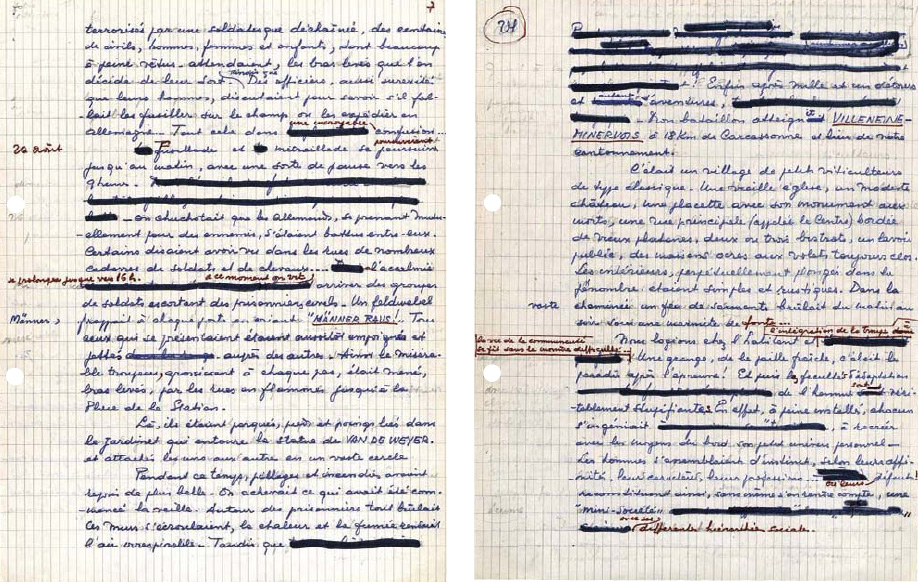 7
terrorisés par une soldatesque déchaînée, des centaines
de civils, hommes, femmes et enfants, dont beaucoup
à peine vêtus attendaient, les bras levés que l'on
décide de leur sort. tandis que Des officiers, aussi surexcités
que leurs hommes, discutaient pour savoir s'il fal-
lait les fusiller sur le champ ou les expédier en
Allemagne. Tout cela dans une incroyable confusion...
26 août
fusillade et mitraillade se poursuivirent
jusqu'au matin, avec une sorte de pause vers les
on chuchotait que les Allemands, se prenant mutu-
ellement pour des ennemis, s'étaient battus entre-eux.
Certains disaient avoir vu dans les rues de nombreux
cadavres de soldats et de chevaux... l'accalmie
se prolongea jusque vers 16 h. à ce moment on vit arriver des groupes
de soldats escortant des prisonniers civils. Un feldwebel
Männer,
frappait à chaque porte en criant "MÄNNER RAUS!" Tous
ceux qui se présentaient étaient aussitôt empoignés et
auprès des autres. Ainsi le miséra-
ble troupeau, grossissant à chaque pas, était mené,
bras levés, par les rues en flammes jusqu'à la
Place de la Station.
Là, ils étaient parqués, pieds et poings liés dans
le jardinet qui entoure la statue de VAN DE WEYER
et attachés les uns aux autres en un vaste cercle
Pendant ce temps, pillages et incendies avaient
repris de plus belle. On achevait ce qui avait été com-
mencé la veille. Autour des prisonniers tout brûlait
Les murs s'écroulaient, la chaleur et la fumée rendaient
l'air irrespirable. Tandis que
201
! Enfin après mille et un détours
et aventures,
Mon bataillon atteignit VILLENEUVE-
MINERVOIS à 18 Km de Carcassonne et lieu de notre
cantonnement.
C'était un village de petits viticulteurs
de type classique. Une vieille église, un modeste
château, une placette avec son monument aux
morts, une rue principale (appelée le Centre) bordée
de vieux platanes, deux ou trois bistrots, un lavoir
public, des maisons ocres aux volets toujours clos.
Les intérieurs, perpétuellement plongés dans la
pénombre étaient simples et rustiques. Dans la
vaste
cheminée un feu de sarments brûlait du matin au
soir sous une marmite de fonte...
l'intégration de la troupe dans
la vie de la communauté
se fit sans la moindre difficulté.
Nous logions chez l'habitant et
Une grange, de la paille fraîche, c'était le
paradis après l'épreuve! Et puis les facultés d'adaptation
de l'homme sont véri-
tablement stupéfiantes. En effet, à peine installé, chacun
s'ingéniait à recréer
avec les moyens du bord, son petit univers personnel.
Les hommes s'assemblaient d'instinct, selon leurs affi-
nités, leur caractère, leur profession
ou leurs
reconstituant ainsi, sans même s'en rendre compte, une
"mini-société"
différente hiérarchie sociale.